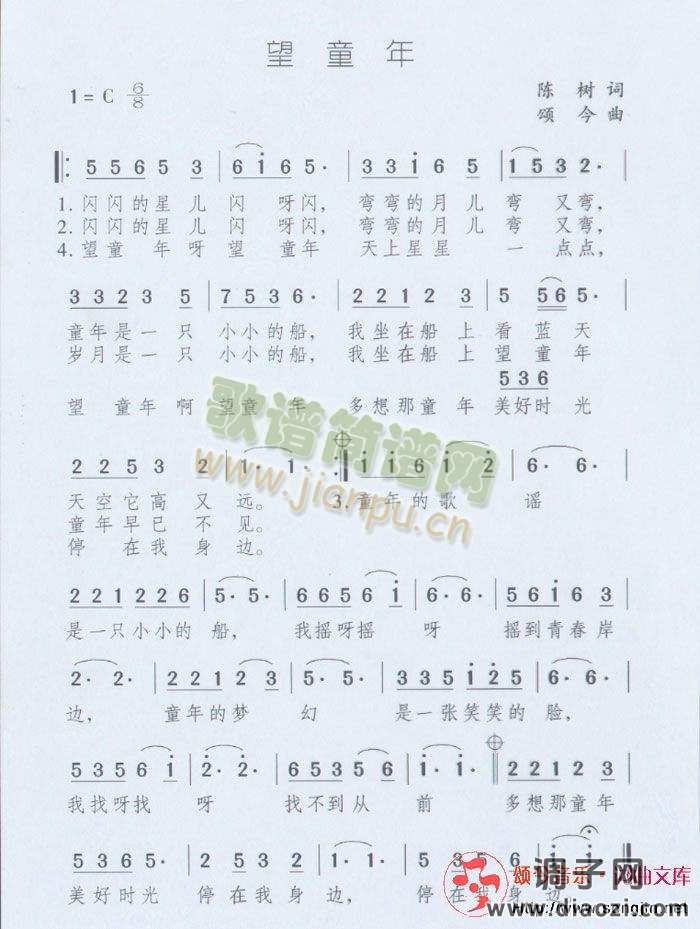 望童年
1=C 6/8
陈树词
颂今曲
5 5 6 5 3 | 6 i 6 5· | 3 3 1 6 5 | 1 5 3 2· |
1.闪闪的星儿闪呀闪，弯弯的月儿弯又弯，
2.闪闪的星儿闪呀闪，弯弯的月儿弯又弯，
4.望童年呀望童年天上星星一点点，
3 3 2 3 5 | 7 5 3 6· | 2 2 1 2 3 | 5 5 6 5· |
童年是一只小小的船，我坐在船上看蓝天
岁月是一只小小的船，我坐在船上望童年
5 3 6
望童年啊望童年多想那童年美好时光
2 2 5 3 2 | 1· 1· :| i i 6 i 2 | 6· 6· |
天空它高又远。3.童年的歌谣
童年早已不见。
停在我身边。
2 2 1 2 2 6 | 5· 5· | 6 6 5 6 i | 6· 6· | 5 6 1 6 3 |
是一只小小的船，我摇呀摇呀摇到青春岸
2· 2· | 2 2 1 2 3 | 5· 5· | 3 3 5 i 2 5 | 6· 6· |
边，童年的梦幻是一张笑笑的脸，
5 3 5 6 i | 2· 2· | 6 5 3 5 6 | i· i· | 2 2 1 2 3 |
我找呀找呀找不到从前多想那童年
5 3 6 5· | 2 5 3 2 | 1· 1· | 5 3 5 6· | i· i· |
美好时光停在我身边，停在我身边。
歌谱简谱网
www.jianpu.cn
颂今音乐·词曲文库
http://www.szngjin.net
调子网
www.diaozi.com